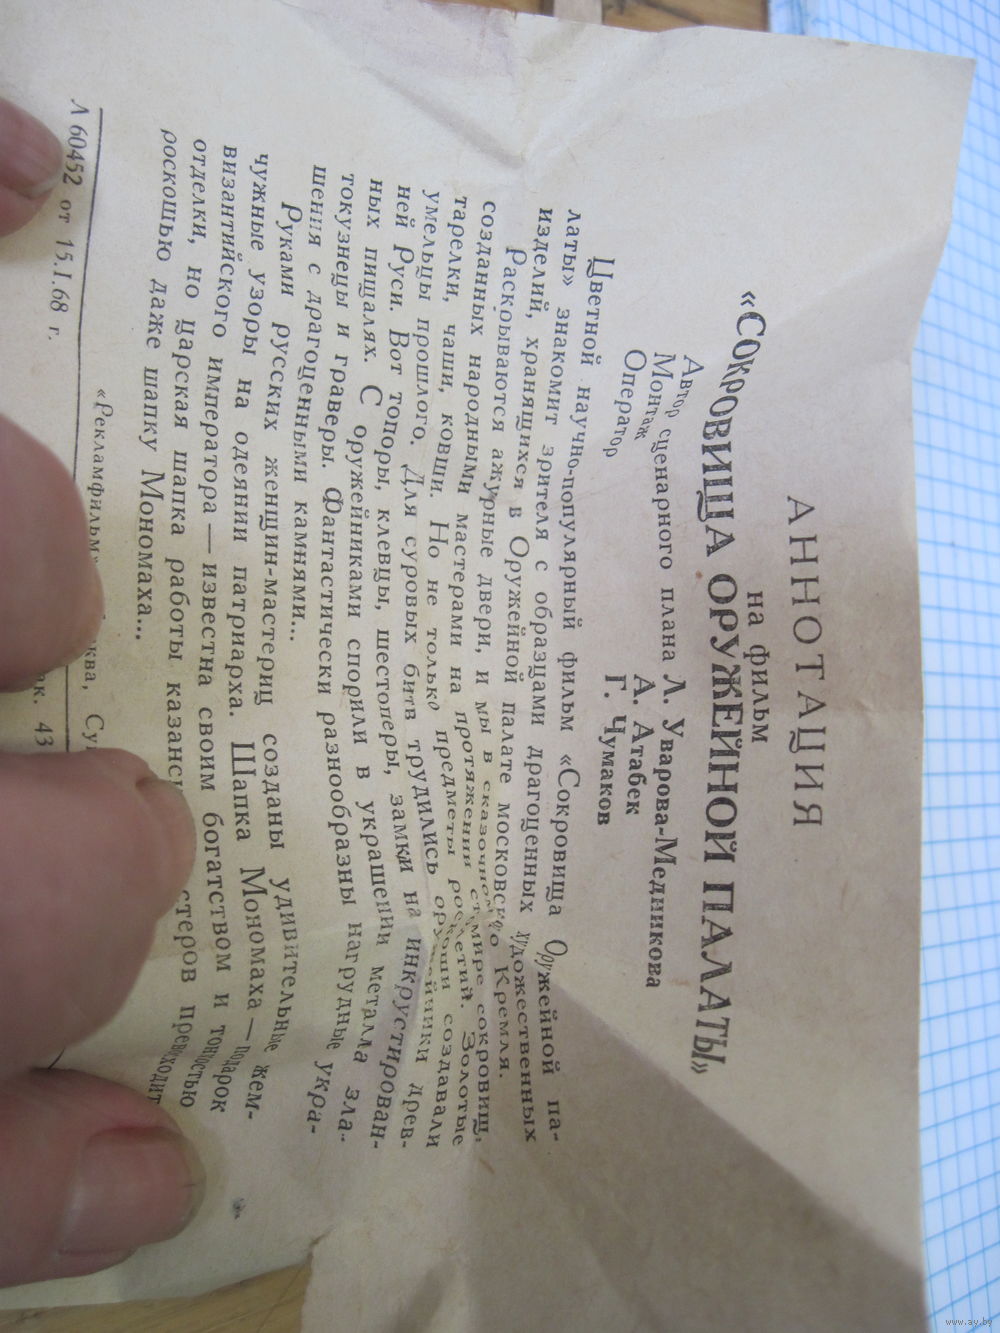 АННОТАЦИЯ
на фильм
«СОКРОВИЩА ОРУЖЕЙНОЙ ПАЛАТЫ»
Автор сценарного плана Л. Уварова-Медникова
Монтаж А. Атабек
Оператор Г. Чумаков
Цветной научно-популярный фильм «Сокровища Оружейной па-
латы» знакомит зрителя с образцами драгоценных художественных
изделий, хранящихся в Оружейной палате московского Кремля.
Раскрываются ажурные двери, и мы в сказочном мире сокровищ,
созданных народными мастерами на протяжении столетий. Золотые
тарелки, чаши, ковши. Но не только предметы роскоши создавали
умельцы прошлого. Для суровых битв трудились оружейники древ-
ней Руси. Вот топоры, клевцы, шестоперы, замки на инкрустирован-
ных пищалях. С оружейниками спорили в украшении металла зла-
токузнецы и граверы. Фантастически разнообразны нагрудные укра-
шения с драгоценными камнями...
Руками русских женщин-мастериц созданы удивительные жем-
чужные узоры на одеянии патриарха. Шапка Мономаха — подарок
византийского императора — известна своим богатством и тонкостью
отделки, но царская шапка работы превосходит
роскошью даже шапку Мономаха...
Л 60452 от 15.I.68 г.
«Рекламфильм»
43
www.ay.by